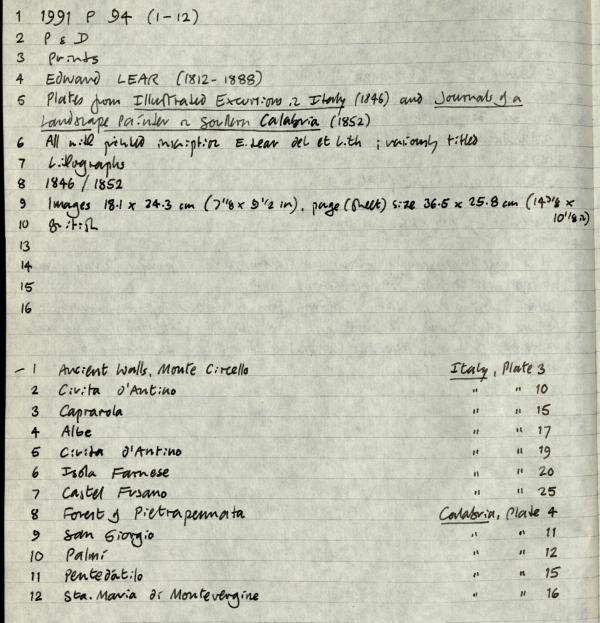 1 1991 P 94 (1-12)
2 P & D
3 Prints
4 Edward LEAR (1812-1888)
5 Plates from Illustrated Excursions in Italy (1846) and Journals of a
Landscape Painter in Southern Calabria (1852)
6 All with printed inscription E. Lear del et lith ; variously titled
7 Lithographs
8 1846 / 1852
9 Images 18.1 x 24.3 cm (7 1/8 x 9 1/2 in), page (sheet) size 36.5 x 25.8 cm (14 3/8 x
10 1/8 in)
10 British
13
14
15
16
- 1 Ancient Walls, Monte Circello Italy, Plate 3
2 Civita d'Antino " " 10
3 Caprarola " " 15
4 Albe " " 17
5 Civita d'Antino " " 19
6 Isola Farnese " " 20
7 Castel Fusano " " 25
8 Forest of Pietrapennata Calabria, Plate 4
9 San Giorgio " " 11
10 Palmi " " 12
11 Pentedátilo " " 15
12 Sta. Maria di Montevergine " " 16